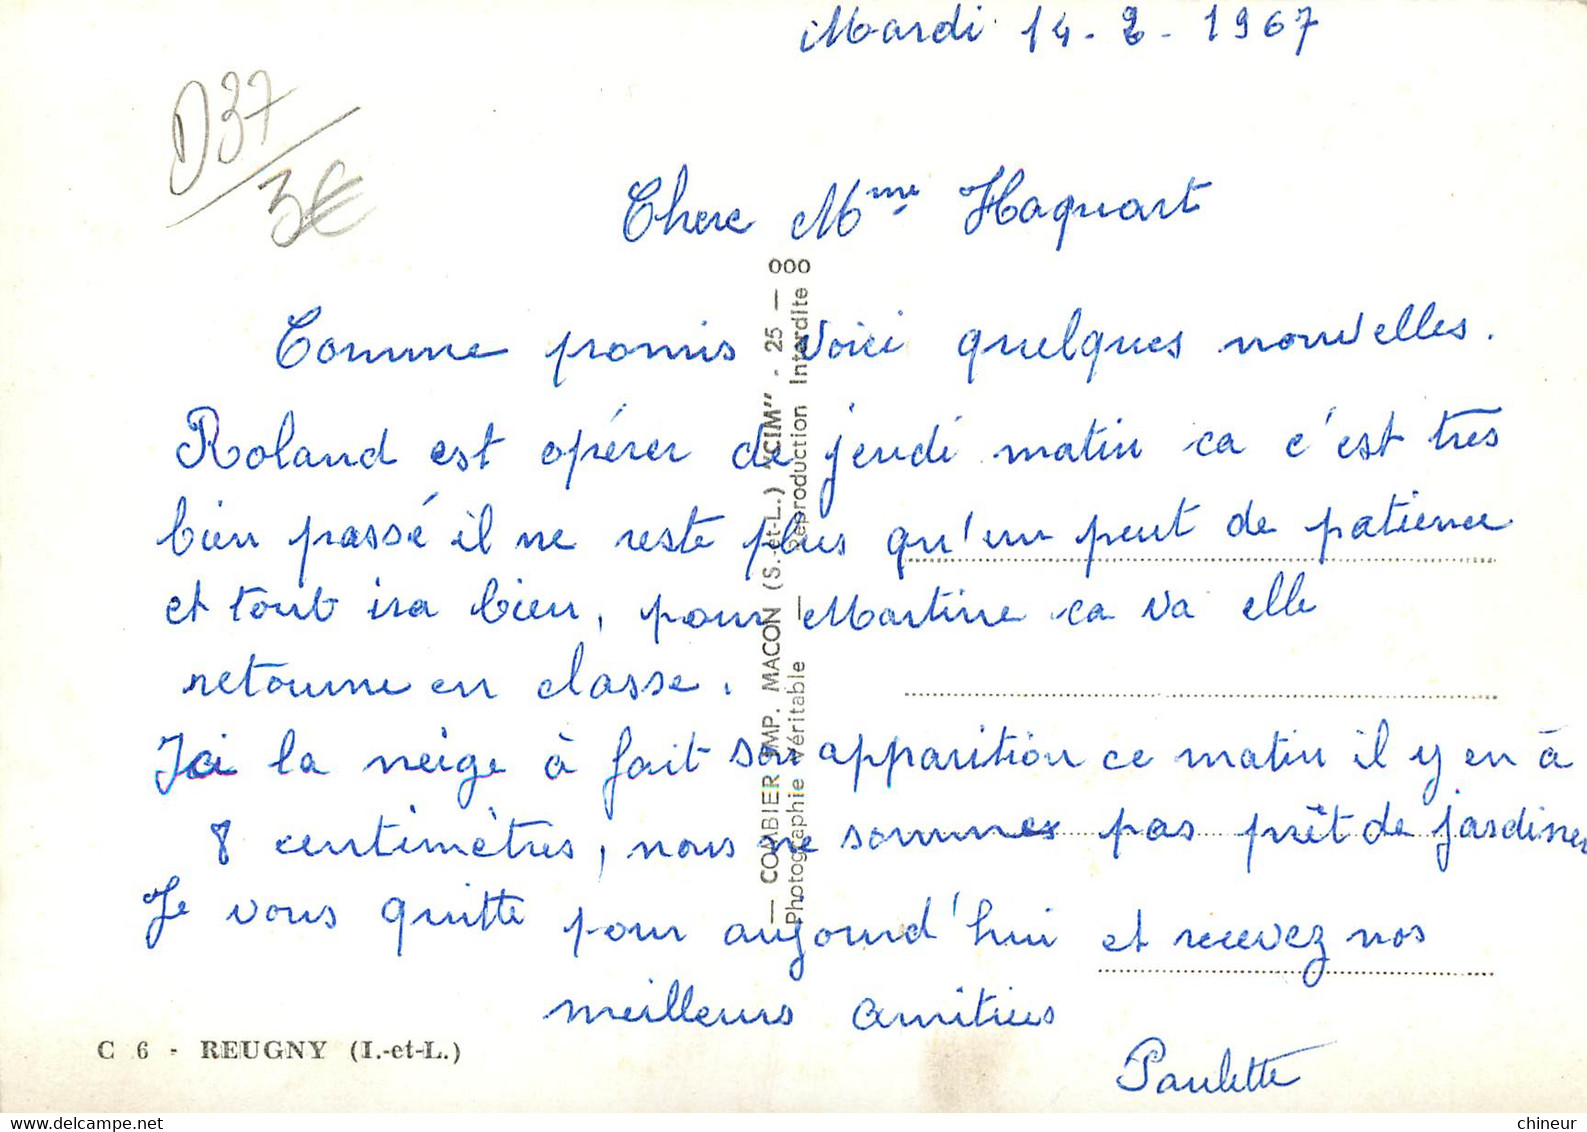 Mardi 14-2-1967
D37
3€
Chere Mme Haquart
Comme promis voici quelques nouvelles.
Roland est opérer de jeudi matin ca c'est très
bien passé il ne reste plus qu'un peut de patience
et tout ira bien, pour Martine ca va elle
retourne en classe.
Ici la neige à fait son apparition ce matin il y en à
8 centimètres, nous ne sommes pas prêt de jardiner
Je vous quitte pour aujourd'hui et recevez nos
meilleurs amitiées
Paulette
— COMBIER IMP. MACON (S.-et-L.) "CIM" - 25 — 000
Photographie Véritable — Reproduction Interdite
C 6 - REUGNY (I.-et-L.)
chineur